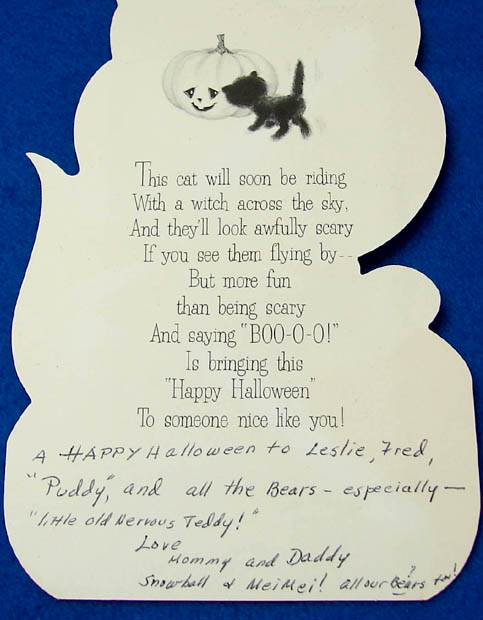 This cat will soon be riding
With a witch across the sky,
And they'll look awfully scary
If you see them flying by--
But more fun
than being scary
And saying "BOO-O-O!"
Is bringing this
"Happy Halloween"
To someone nice like you!
A HAPPY Halloween to Leslie, Fred,
"Puddy", and all the Bears - especially -
"little old Nervous Teddy!"
Love
Mommy and Daddy
Snowball & MeiMei! all our Bears too!